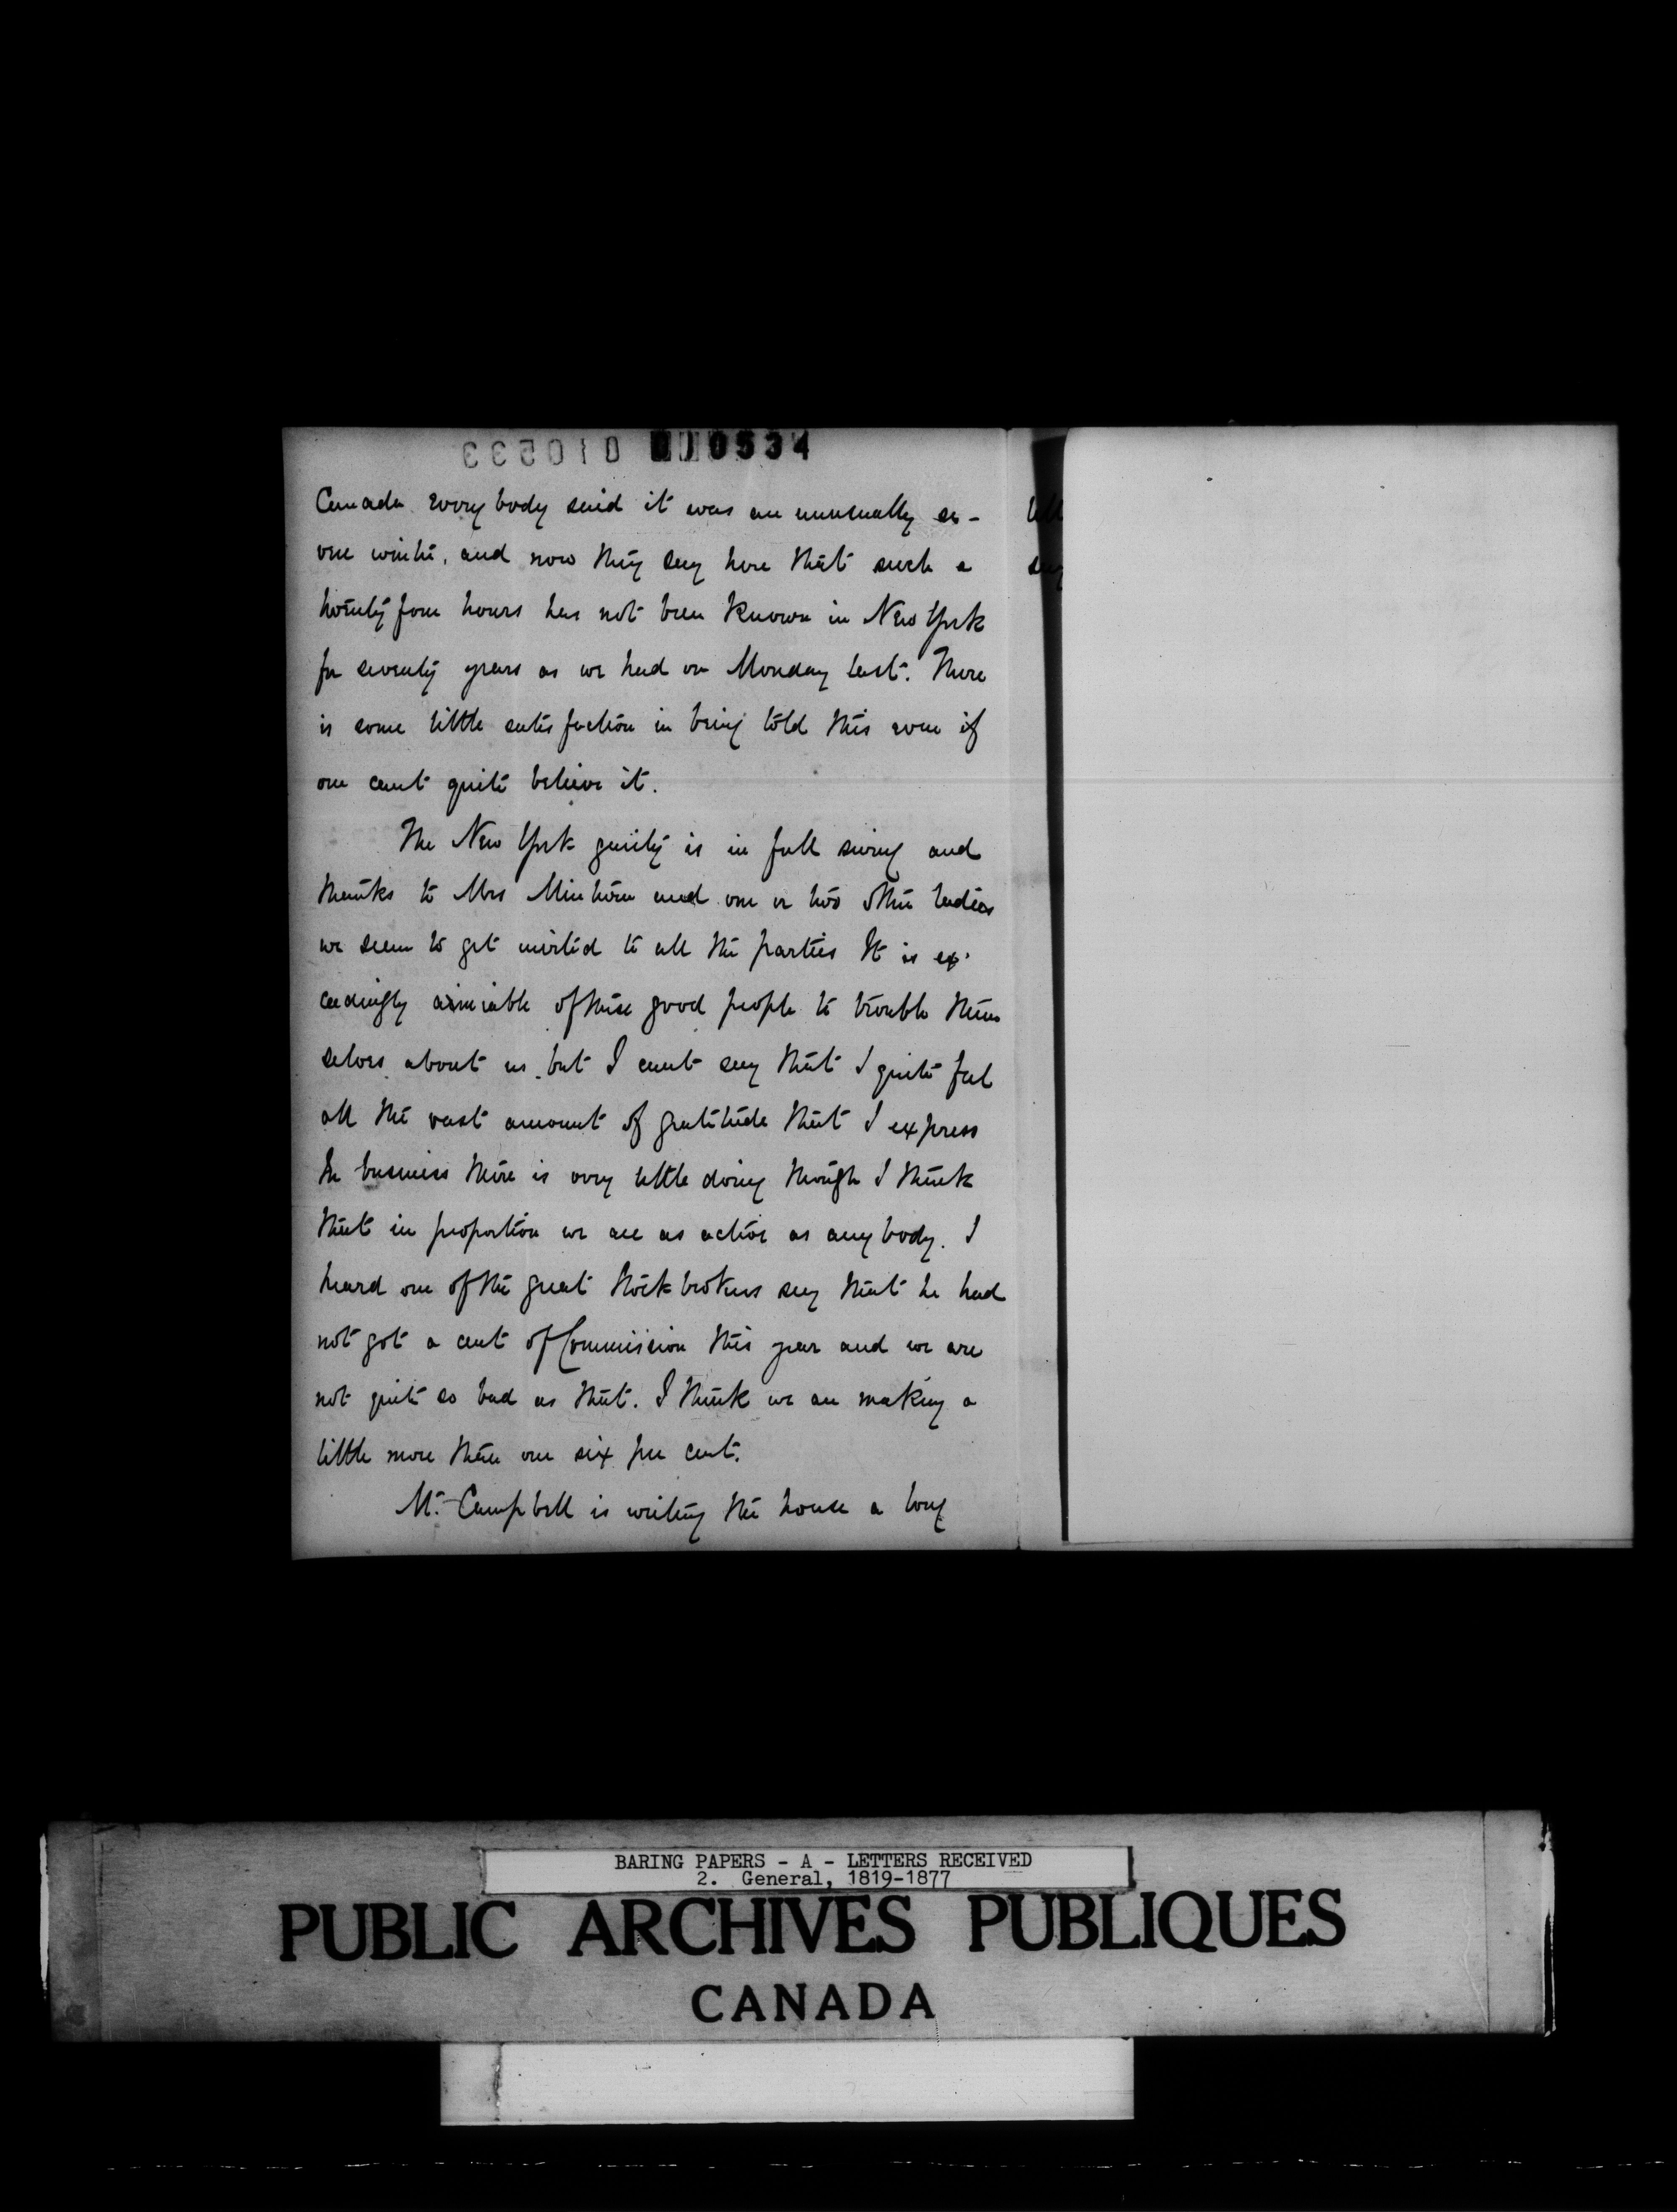 010533 010534
Canada every body said it was an unusually se-
vere winter, and now they say here that such a
twenty four hours has not been known in New York
for seventy years as we had on Monday last. There
is some little satisfaction in being told this even if
one cant quite believe it.
The New York gaiety is in full swing and
thanks to Mrs Minturn and one or two other ladies
we seem to get invited to all the parties It is ex-
ceedingly aimiable of these good people to trouble them
selves about us but I cant say that I quite feel
all the vast amount of gratitude that I express
In business there is very little doing though I think
that in proportion we are as active as any body. I
heard one of the great Stock brokers say that he had
not got a cent of Commission this year and we are
not quite so bad as that. I think we are making a
little more than our six per cent.
Mr. Campbell is writing the house a long
BARING PAPERS - A - LETTERS RECEIVED
2. General, 1819-1877
PUBLIC ARCHIVES PUBLIQUES
CANADA